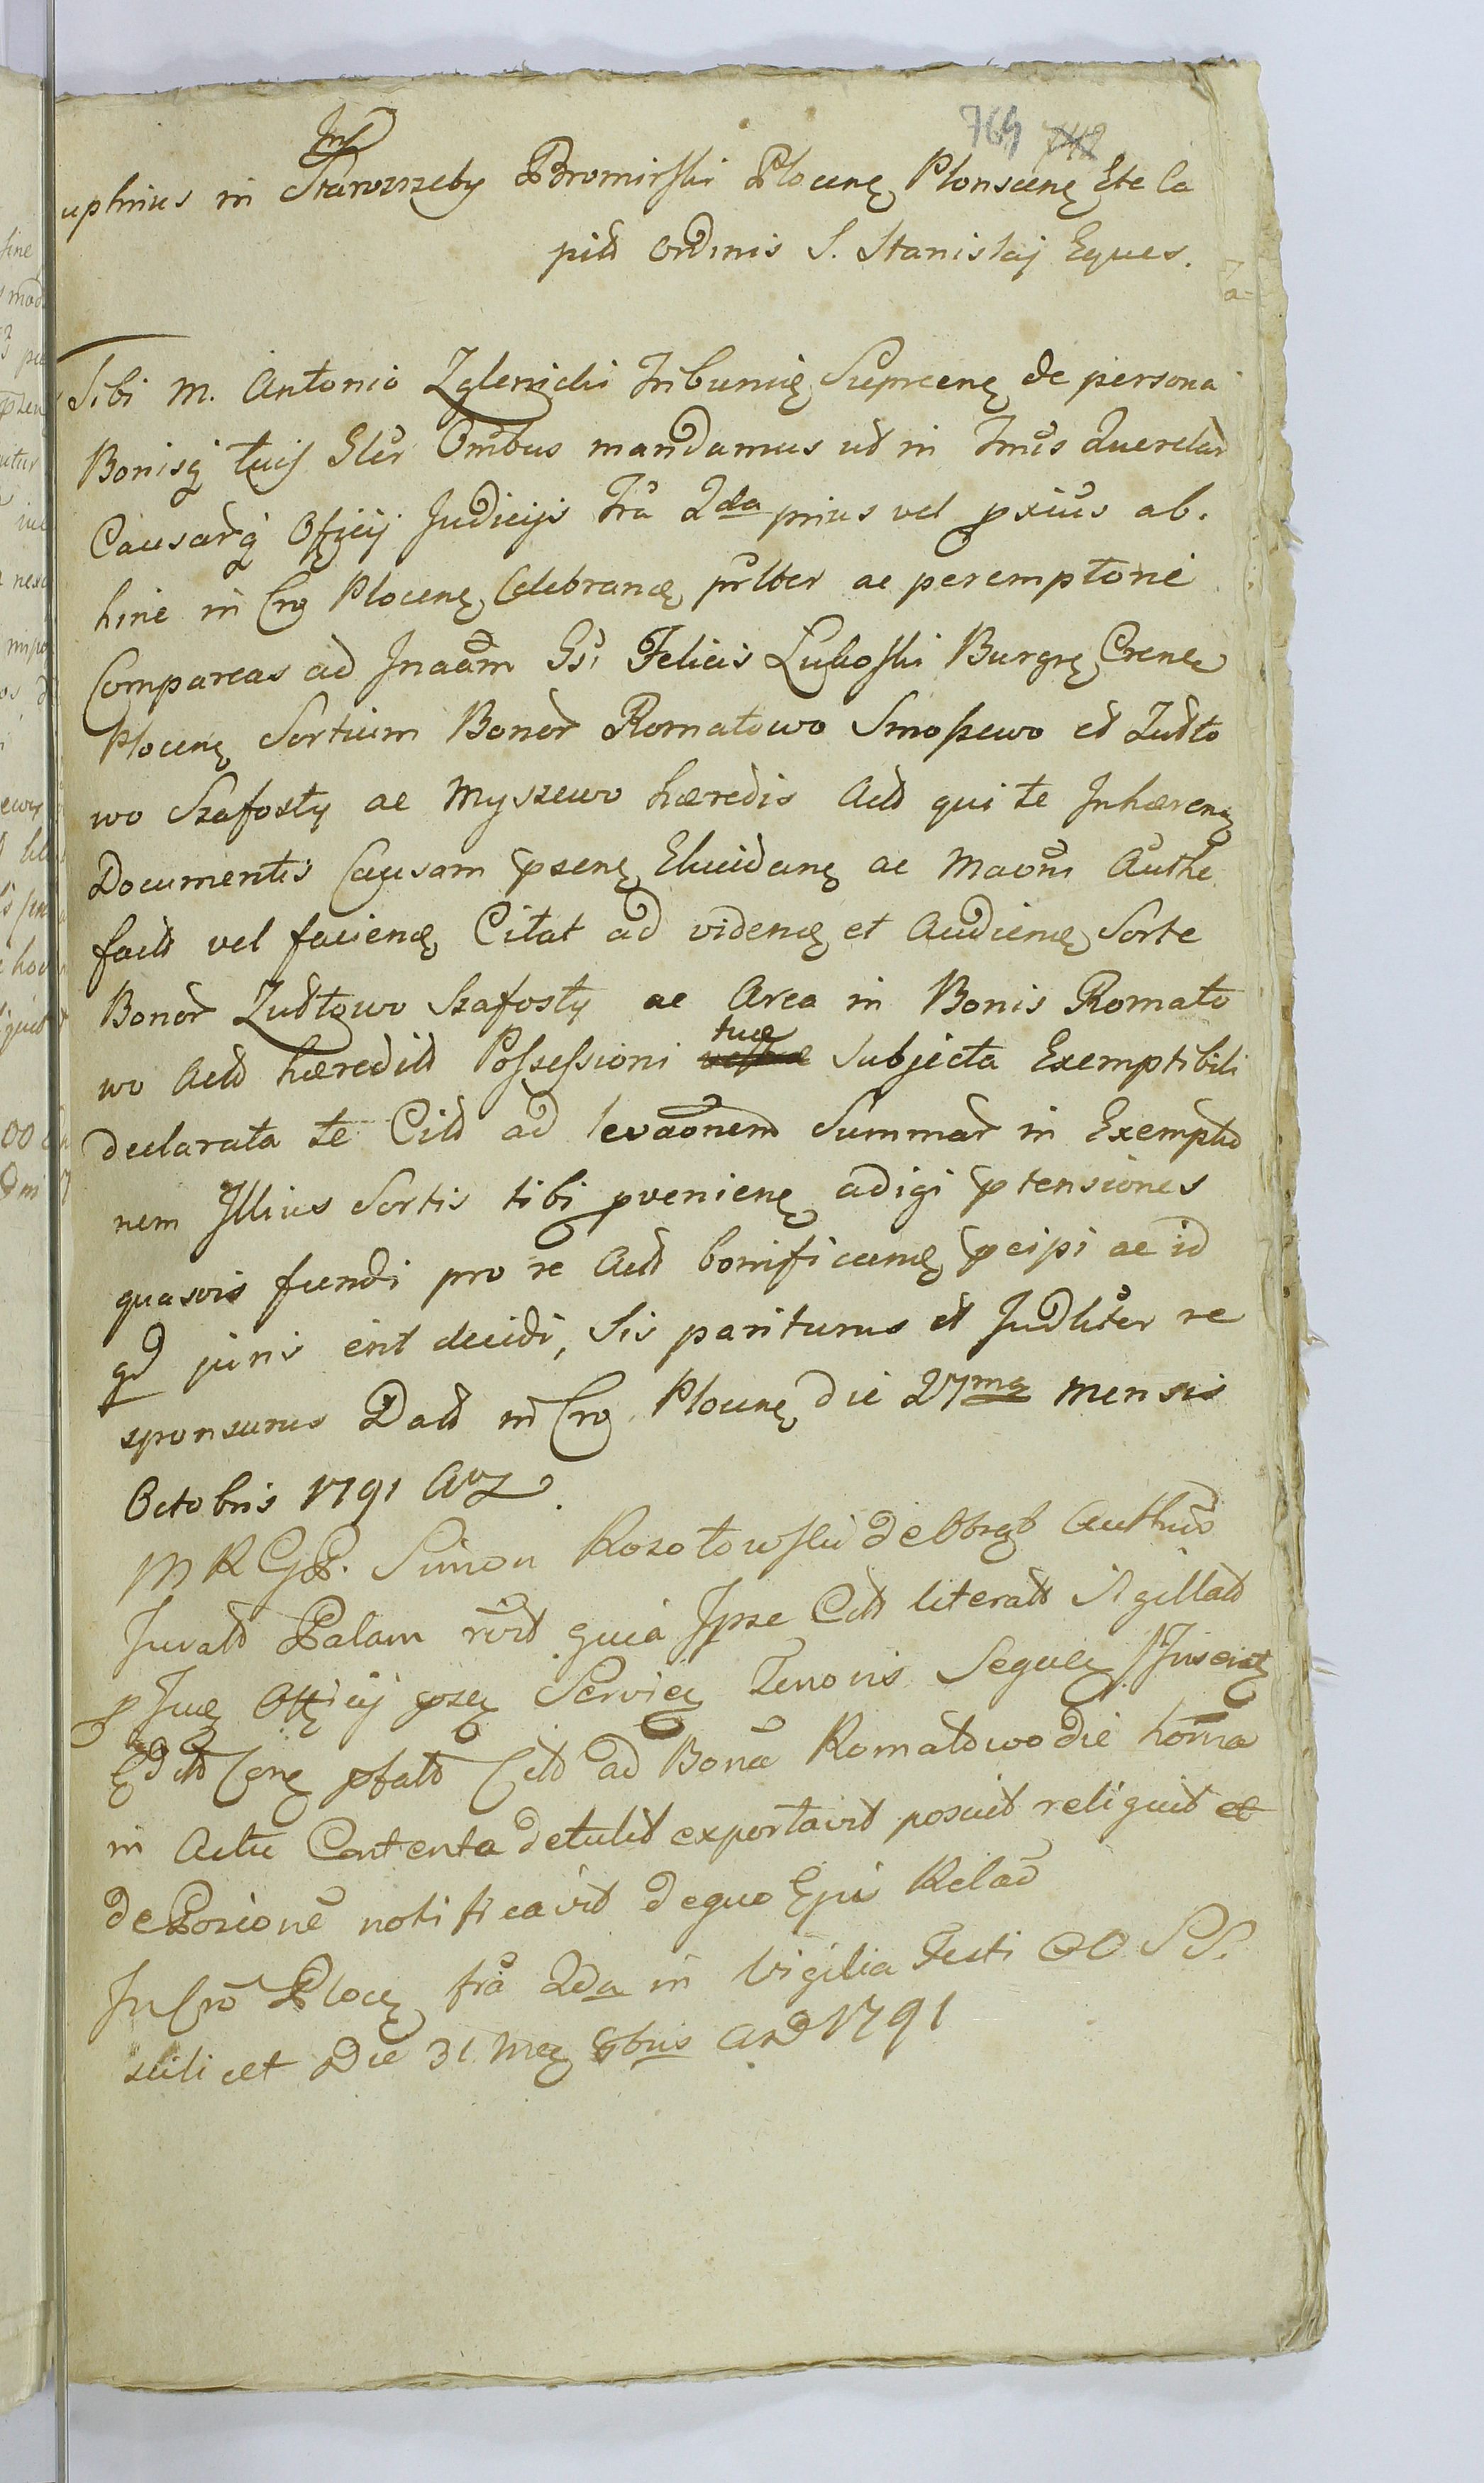 Ins
764 742
uphrius in Starorzeby Bromirski Plocenę Plonscenę Etc Ca
pitt Ordinis S. Stanislaj Eques.
Tibi M. Antonio Zglenicki Tribunię Supreenę de persona
Bonisq tuis Gler Omibus mandamus ut in Tmis Querelar
Causarq Officij Judicijs fra 2da prius vel pxius ab.
hinc in Cro Plocenę Celebranđ prlter ac peremptorie
Compareas ad Jnaam Gsi Felicis Lukoski Burgrę Crenę
Plocenę Sortium Bonor Romatowo Smoszewo et Zudto
wo Szafosty ac Myszewo hæredis Actt qui te Inhærenę
Documentis Causam psenę Elucidanę ac Maom Authe
factt vel faciend Citat ad vidend et Audiend Sorte
Bonor Zudtowo Szafosty ac Area in Bonis Romato
wo Actt hæreditt Possessioni tuæ Subjecta Exemptibili
declarata te Citt ad levaonem Summar in Exemptio
nem Illius Sortis tibi pvenienę adigi ptensiones
quasvis fundi pro re Actt bonificand pcipi ac id
qd juris erit decidi, Sis pariturus et Judliter re
sponsurus Datt in Cro Plocenę die 27ma mensis
Octobris 1791
Simon Kozotowski de
Juratt Palam rvit quia Ipse Citt literatt Sigillatt
Officij Tenoris
Citt ad Bona Romatowo die
in Actu Contenta detulit exportavit posuit reliquit et
notificavit de quo Relao
In Cro Ploceę fra 2da in Vigilia Festi OO SS.
scilicet Die 31 Meę 8bris 1791